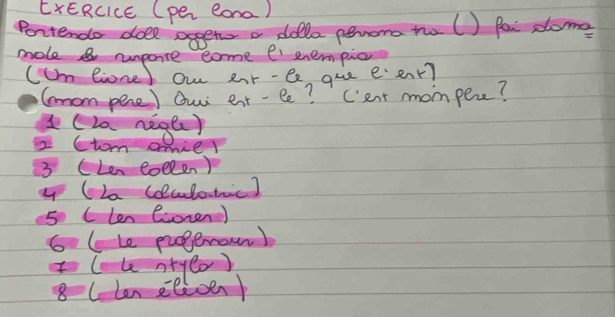 EXERCICE (per casa)
Partendo dall'oggetto o dalla persona tra () fai doma=
nde e risposte come l'esempio
(Un livre) Qu'est-ce que c'est?
(mon père) Qui est-ce? C'est mon père?
1 (La règle)
2 (ton amie)
3 (Les colles)
4 (La calculatric)
5 (Les livres)
6 (Le professeur)
7 (Le stylo)
8 (Les élèves)